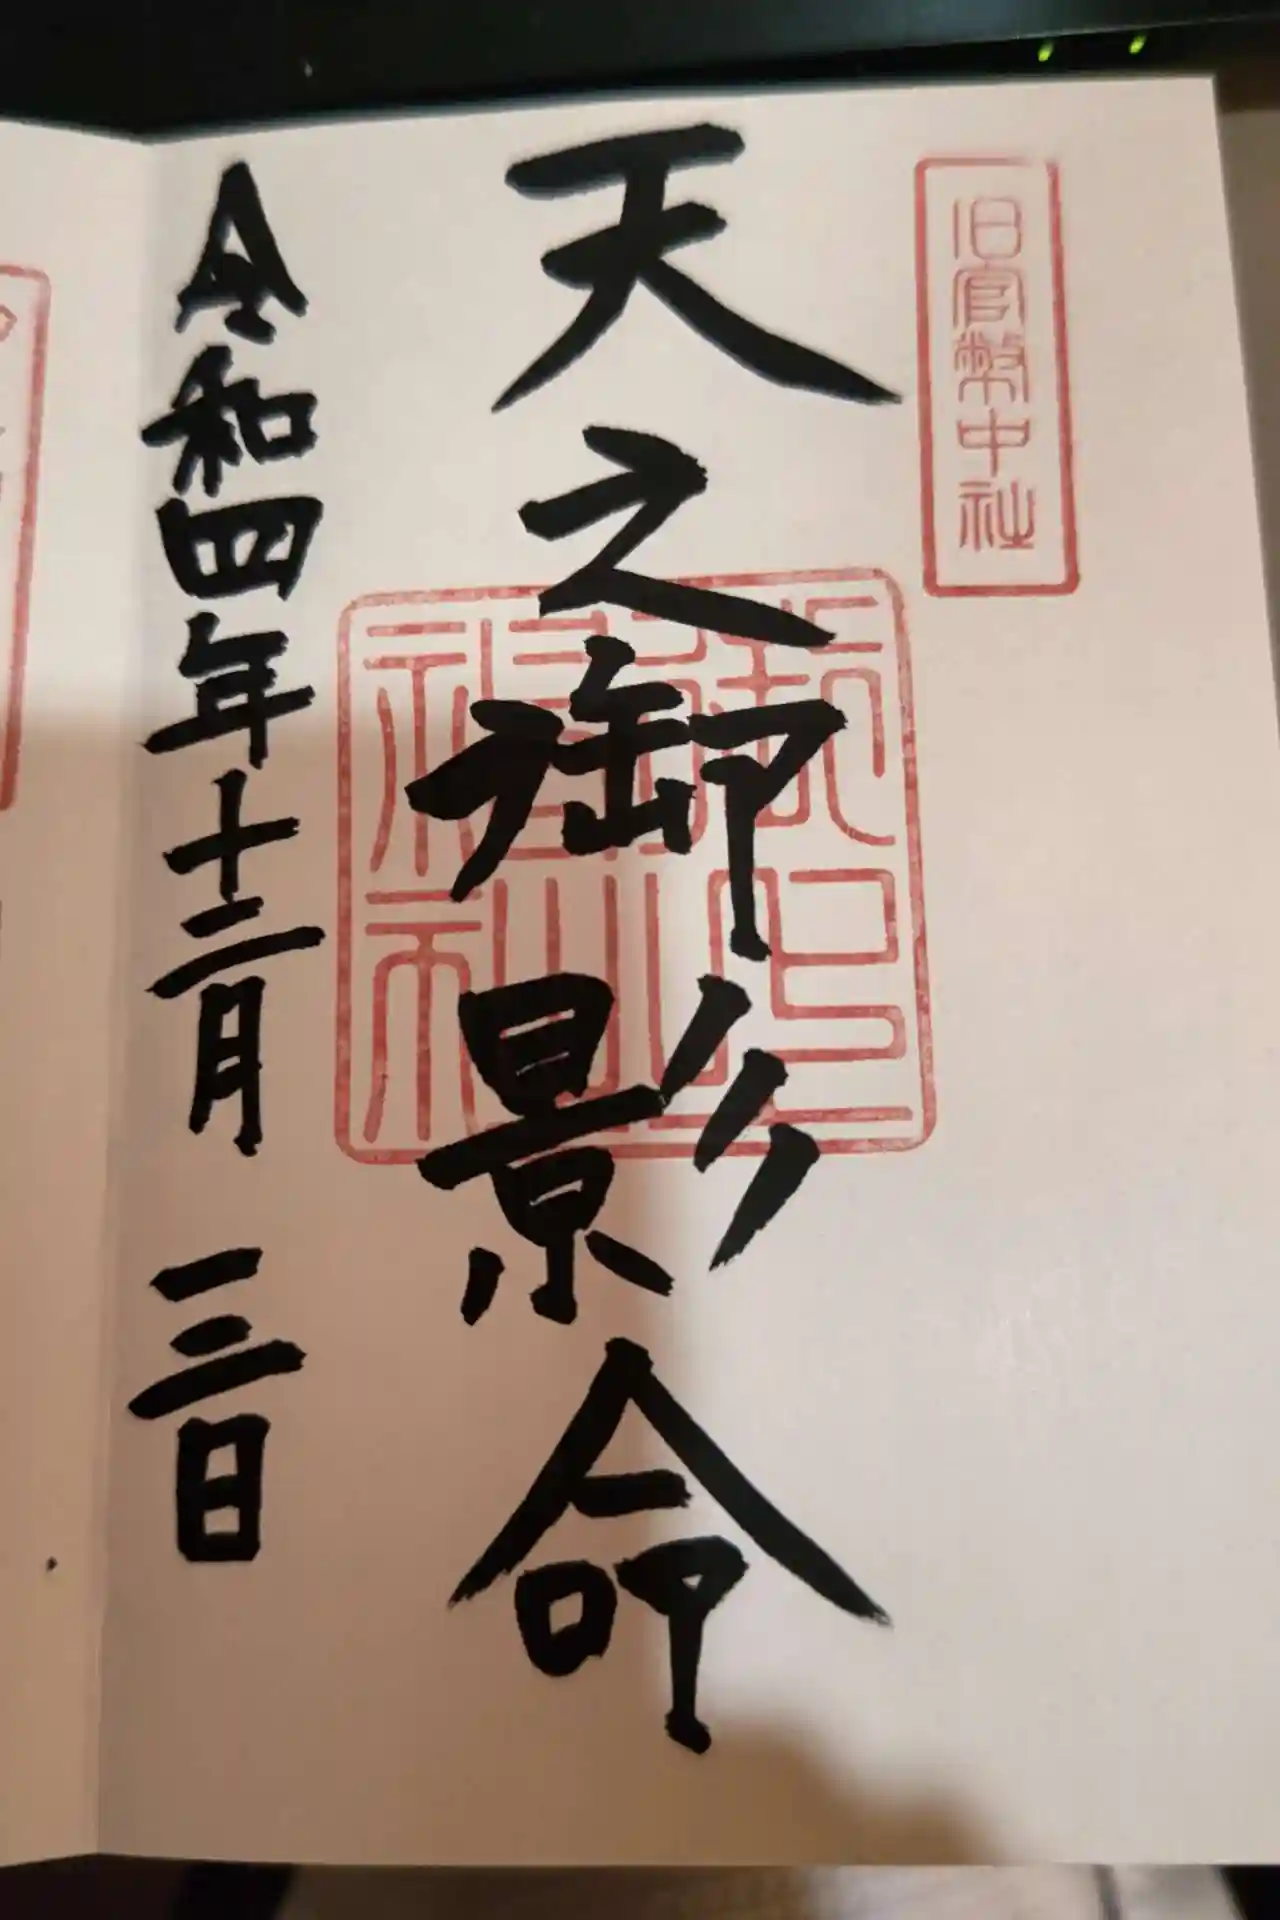 旧官幣中社
天之御影命
御上神社
令和四年十二月 三日